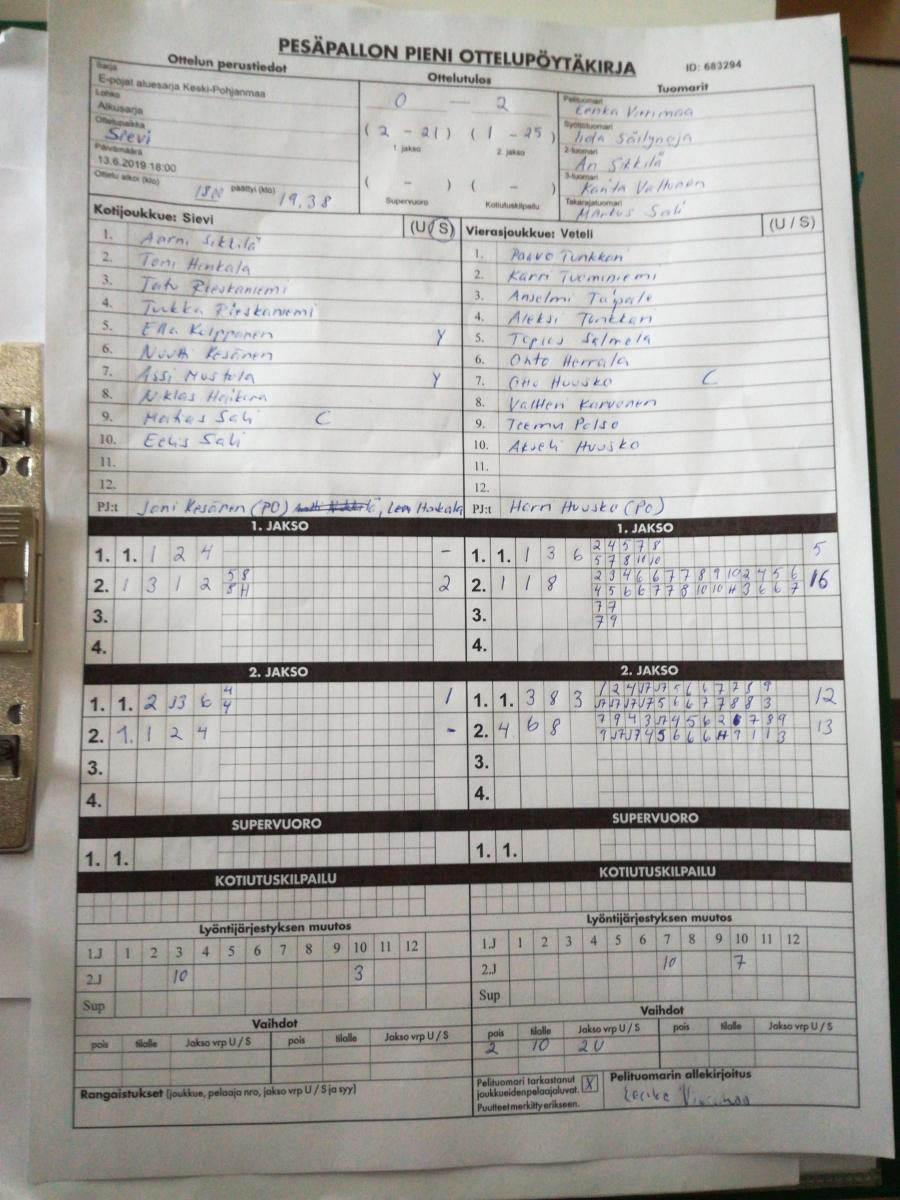 PESÄPALLON PIENI OTTELUPÖYTÄKIRJA
ID: 683294
Ottelun perustiedot
Sarja
E-pojat aluesarja Keski-Pohjanmaa
Lohko
Alkusarja
Ottelupaikka
Sievi
Päivämäärä
13.6.2019 18:00
Ottelu alkoi (klo) 18 päättyi (klo) 19.38
Ottelutulos
0 — 2
( 2 - 21 ) ( 1 - 25 )
1. jakso 2. jakso
( - ) ( - )
Supervuoro Kotiutuskilpailu
Tuomarit
Pelituomari
Syöttötuomari
Iida Säilynoja
2-tuomari
Ari Sikkilä
3-tuomari
Valtonen
Takarajatuomari
Markus Sali
Kotijoukkue: Sievi (U / S)
1. Aarni Sikkilä
2. Toni Honkala
3. Rieskaniemi
4. Tuukka Rieskaniemi
5. Ella Kolppanen Y
6. Nuutti Kesänen
7. Assi Mustola Y
8. Niklas
9. Sali C
10. Eelis Sali
11.
12.
PJ:t Joni Kesänen (PO)
Vierasjoukkue: Veteli (U / S)
1. Paavo Tunkkari
2. Karri Tuominiemi
3. Anselmi Taipale
4. Aleksi Tunkkari
5. Topias Salmela
6. Ohto Herrala
7. Otto Huusko C
8. Valtteri Karvonen
9. Teemu Polso
10. Akseli Huusko
11.
12.
PJ:t Harri Huusko (PO)
1. JAKSO
1. 1. 1 2 4 -
2. 1 3 1 2 5 8 2
8 H
3.
4.
1. JAKSO
1. 1. 1 3 6 2 4 5 7 8 5
5 7 8 10 10
2. 1 1 8 2 3 4 6 6 7 7 8 9 10 2 4 5 6 16
4 5 6 6 7 7 8 10 10 H 3 6 6 7
3. 7 7
7 9
4.
2. JAKSO
1. 1. 2 J3 6 4 1
4
2. 1. 1 2 4 -
3.
4.
2. JAKSO
1. 1. 3 8 3 12
2. 4 6 8 13
3.
4.
SUPERVUORO
1. 1.
SUPERVUORO
1. 1.
KOTIUTUSKILPAILU
KOTIUTUSKILPAILU
Lyöntijärjestyksen muutos
1.J 1 2 3 4 5 6 7 8 9 10 11 12
2.J 10 3
Sup
Lyöntijärjestyksen muutos
1.J 1 2 3 4 5 6 7 8 9 10 11 12
2.J 10 7
Sup
Vaihdot
pois tilalle Jakso vrp U / S pois tilalle Jakso vrp U / S
Vaihdot
pois tilalle Jakso vrp U / S pois tilalle Jakso vrp U / S
2 10 2U
Rangaistukset (joukkue, pelaaja nro, jakso vrp U / S ja syy)
Pelituomari tarkastanut
joukkueiden pelaajaluvat. X
Puutteet merkitty erikseen.
Pelituomarin allekirjoitus